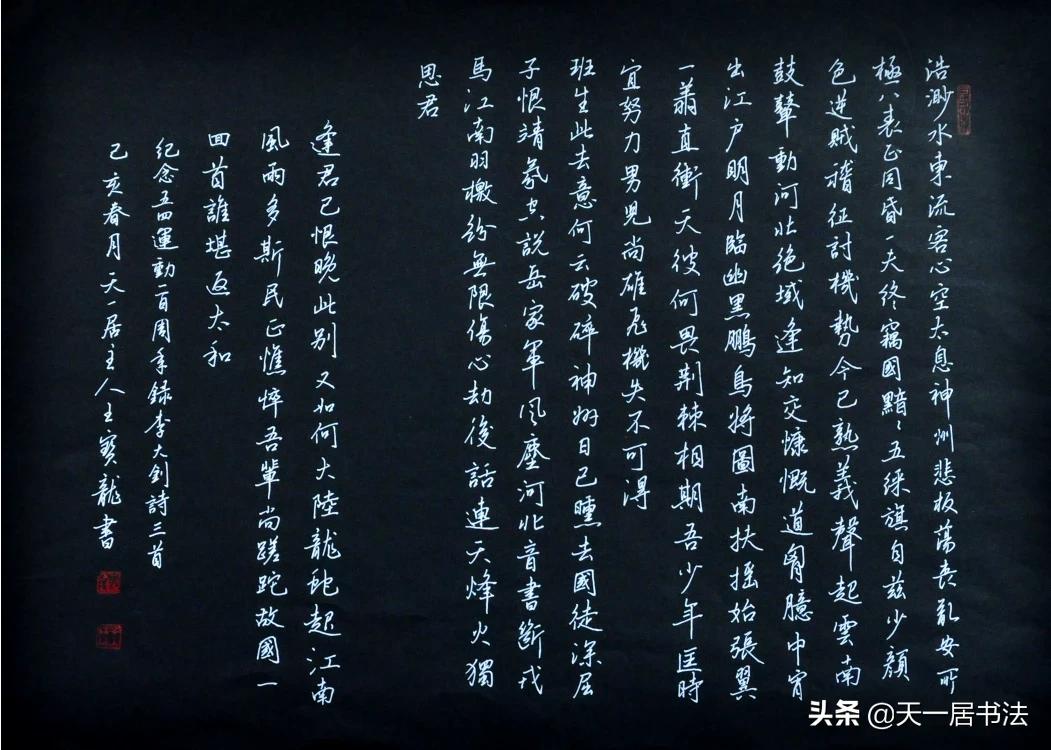 浩渺水東流客心空太息神州悲板蕩喪亂安所
極八表正同昏一夫終竊國黯〻五綵旗自兹少顏
色逆賊稽征討機勢今已熟義聲起雲南
鼓鼙動河北絶域逢知交慷慨道胷臆中宵
出江户明月臨幽黑鵬鳥將圖南扶摇始張翼
一翦直衝天彼何畏荆棘相期吾少年匡時
宜努力男兒尚雄飛機失不可淂
班生此去意何云破碎神州日已曛去國徒深屈
子恨靖氛空説岳家軍風塵河北音書斷戎
馬江南羽檄紛無限傷心劫後話連天烽火獨
思君
逢君已恨晚此别又如何大陸龍蛇起江南
風雨多斯民正憔悴吾輩尚蹉跎故國一
回首誰堪返太和
紀念五四運動一百周年録李大釗詩三首
己亥春月天一居主人王寶龍書
头条 @天一居书法